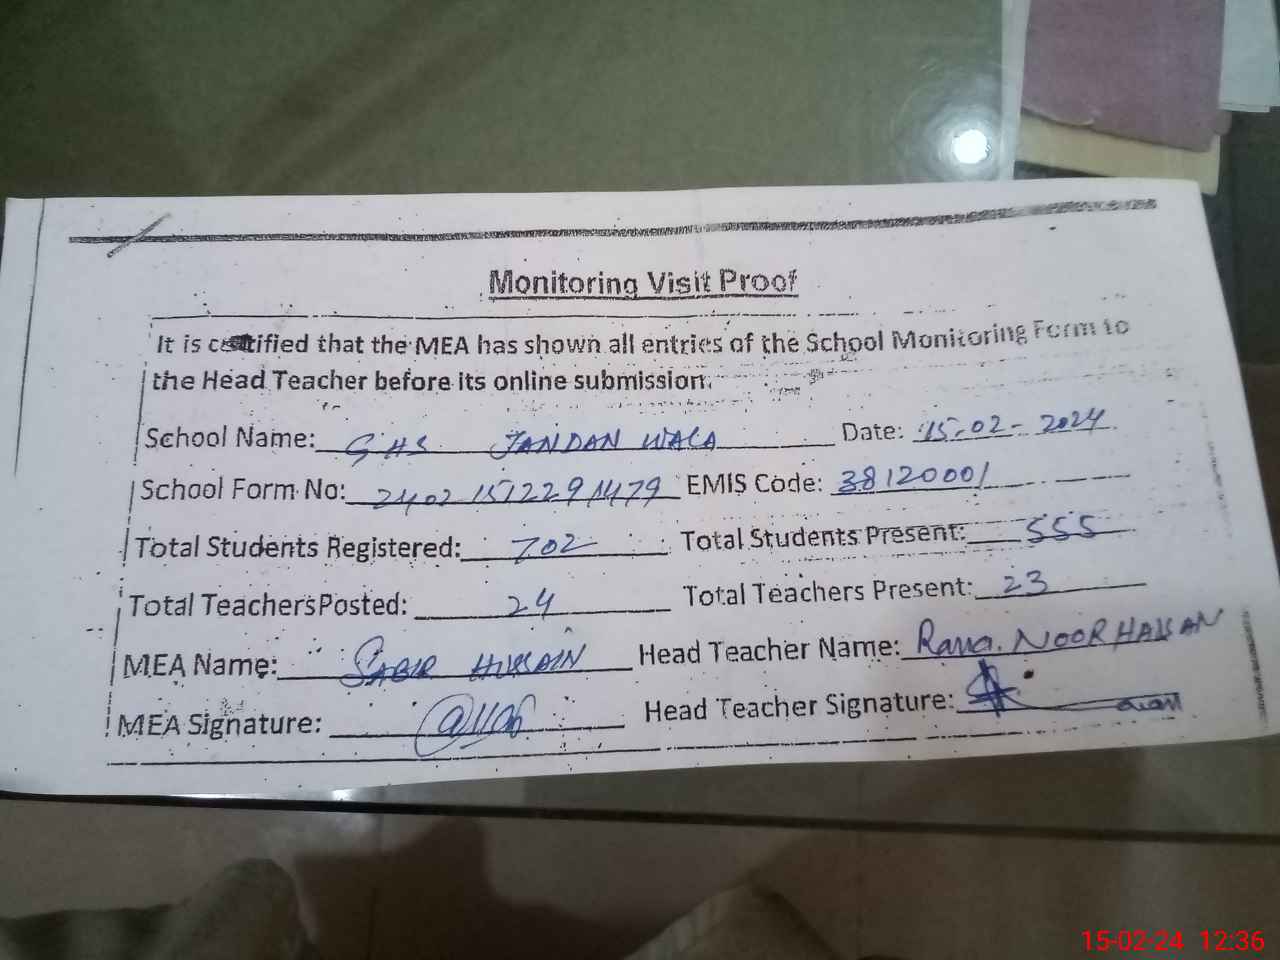 Monitoring Visit Proof
It is certified that the MEA has shown all entries of the School Monitoring Form to
the Head Teacher before its online submission.
School Name: GHS JANDAN WALA Date: 15-02-2024
School Form No: 24021512291479 EMIS Code: 38120001
Total Students Registered: 702 Total Students Present: 555
Total Teachers Posted: 24 Total Teachers Present: 23
MEA Name: SABIR HUSSAIN Head Teacher Name: Rana. NOOR HASSAN
MEA Signature: Head Teacher Signature:
15-02-24 12:36